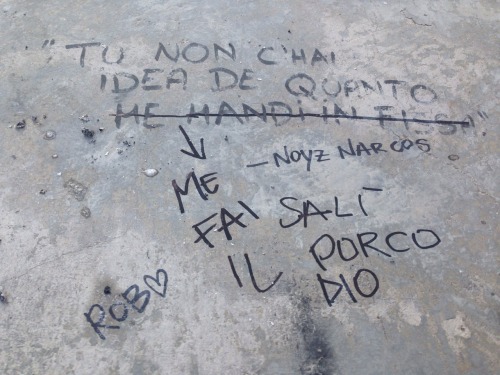 "TU NON C'HAI
IDEA DE QUANTO
ME MANDI IN FISSA"
- NOYZ NARCOS
ME
FAI SALÍ
IL PORCO
DIO
ROB♡